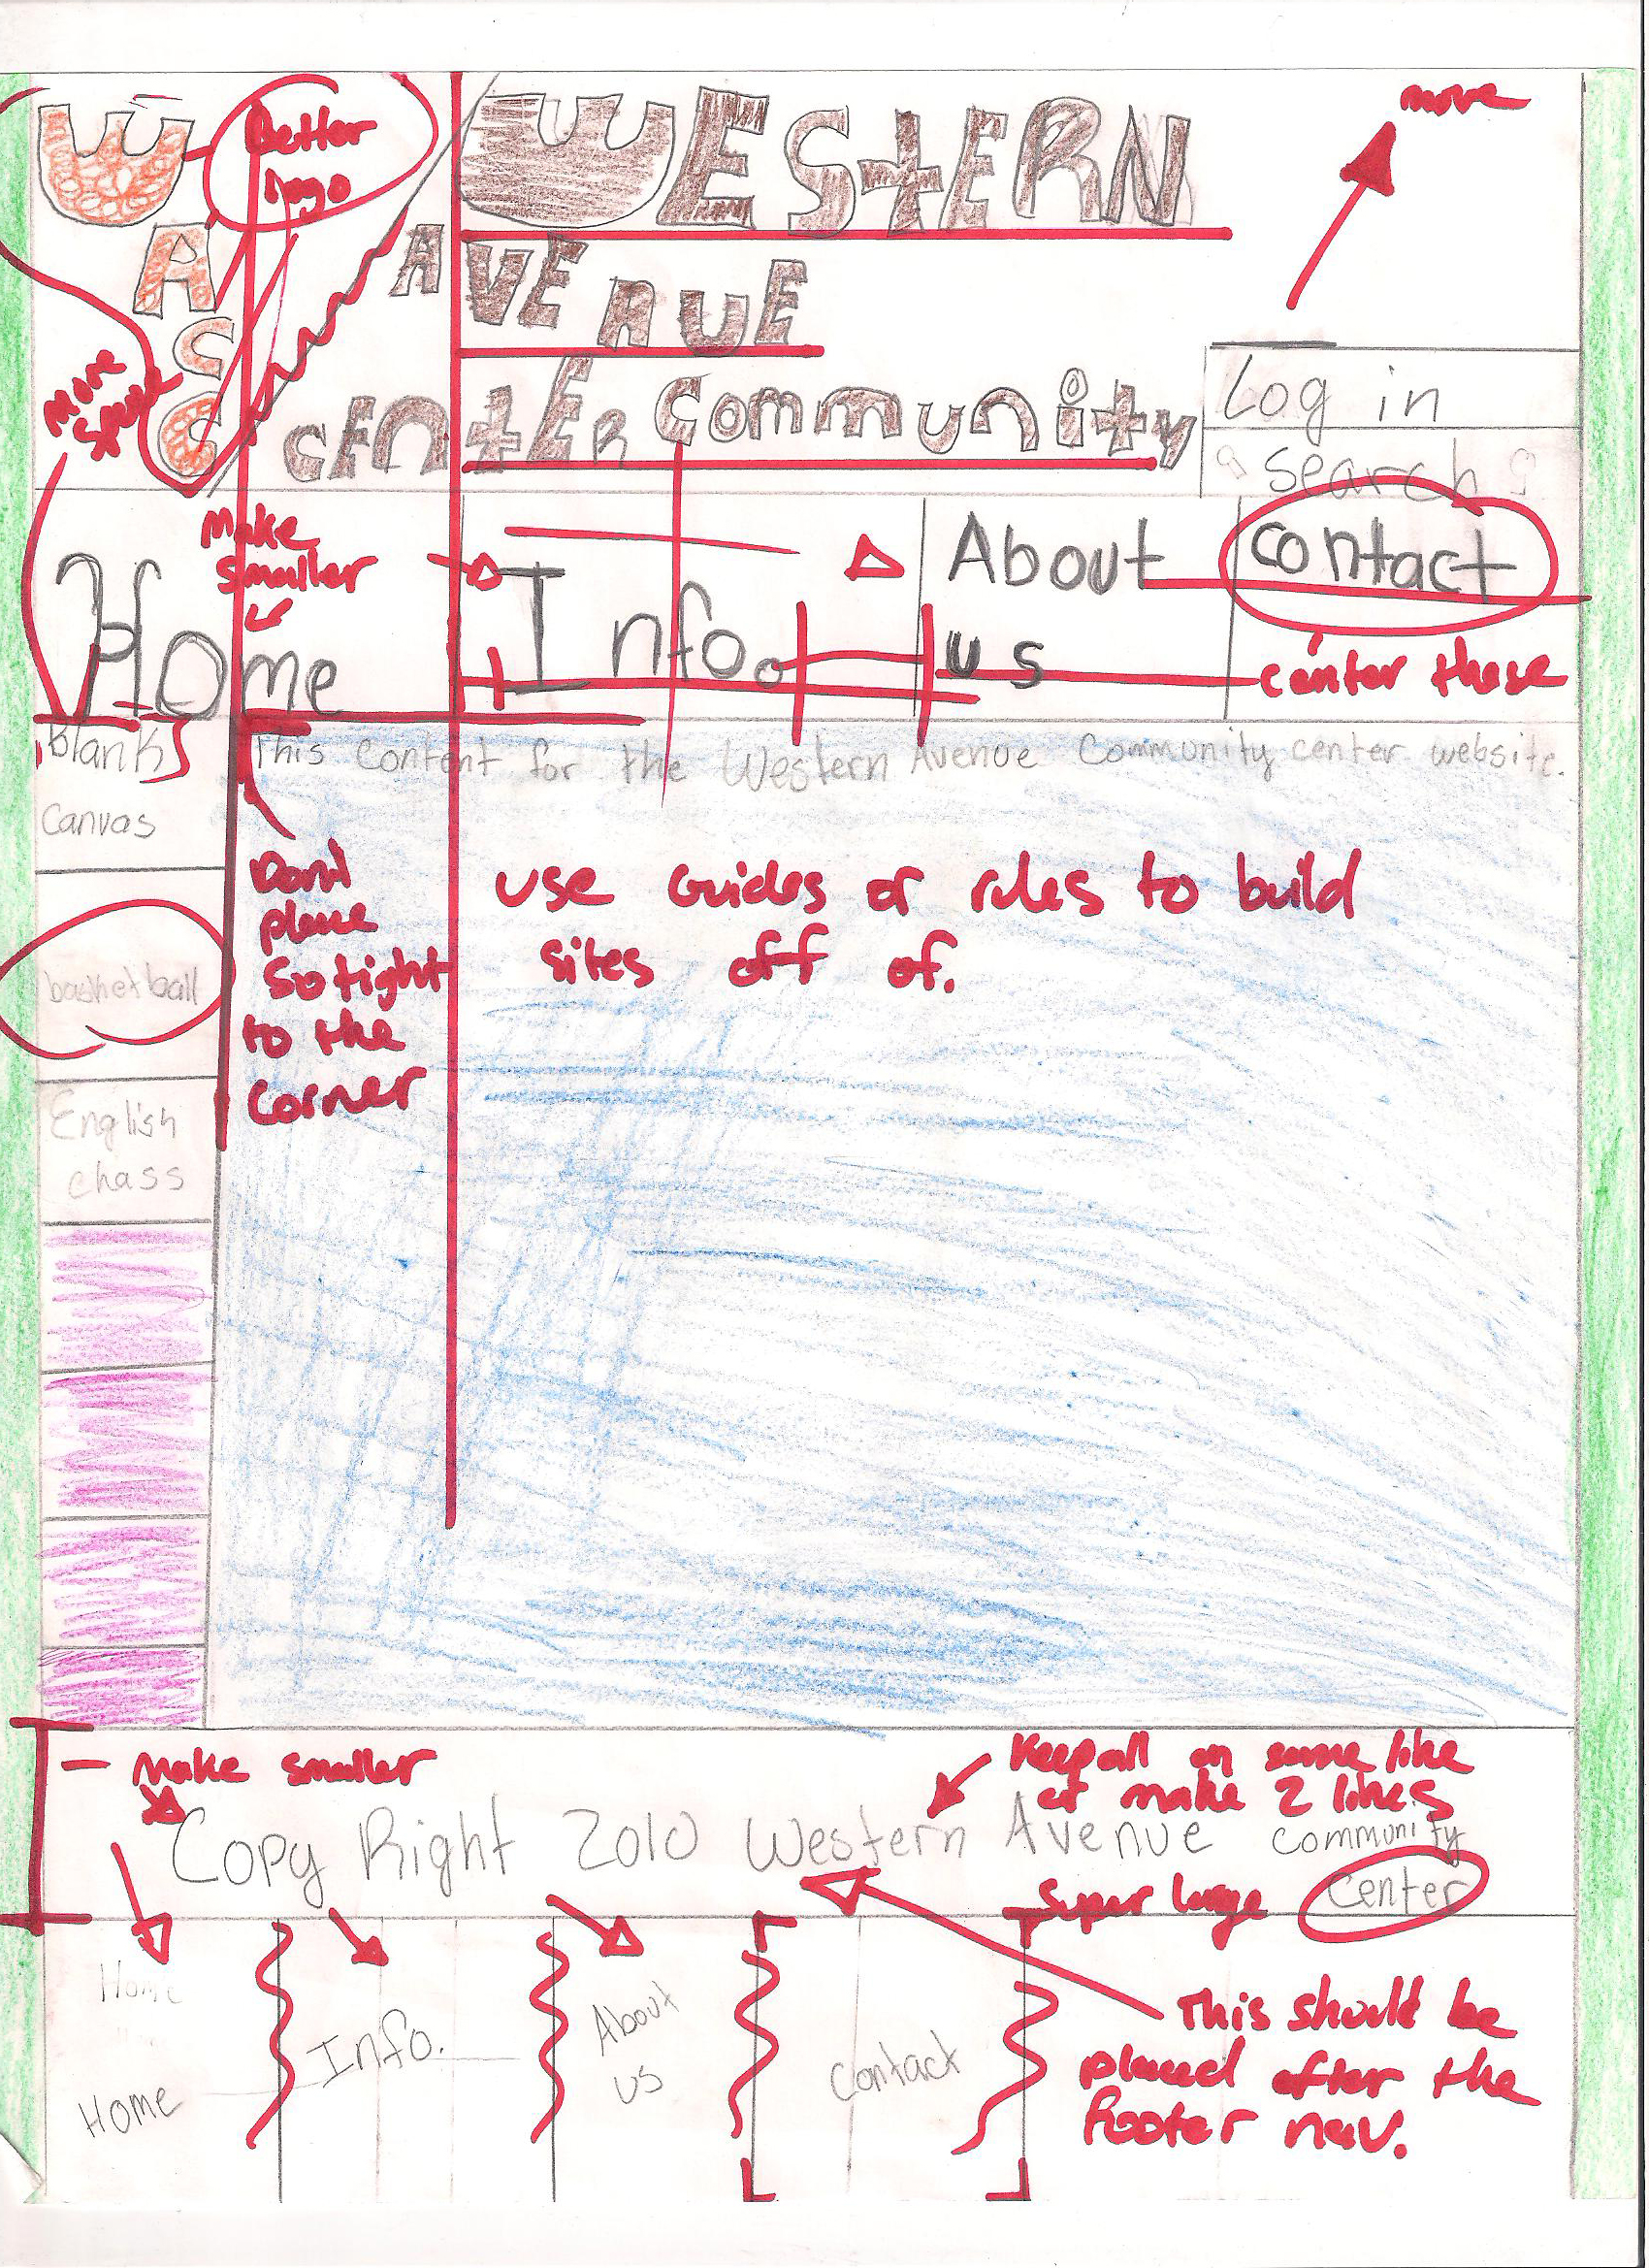 move
Better
logo
W
A
C
C
WESTERN
AVENUE
CENTER Community
More
Space
Log in
search
Make
smaller
Home
Info.
About
us
contact
center these
blank
canvas
This content for the Western Avenue Community center website.
Dont
place
so tight
to the
corner
use Guides or rules to build
sites off of.
basketball
English
chass
Make smaller
Keep all on same like
or make 2 likes
Copy Right 2010 Western Avenue Community
center
super large
Home
Home
Info.
About
us
contact
This should be
placed after the
footer nav.